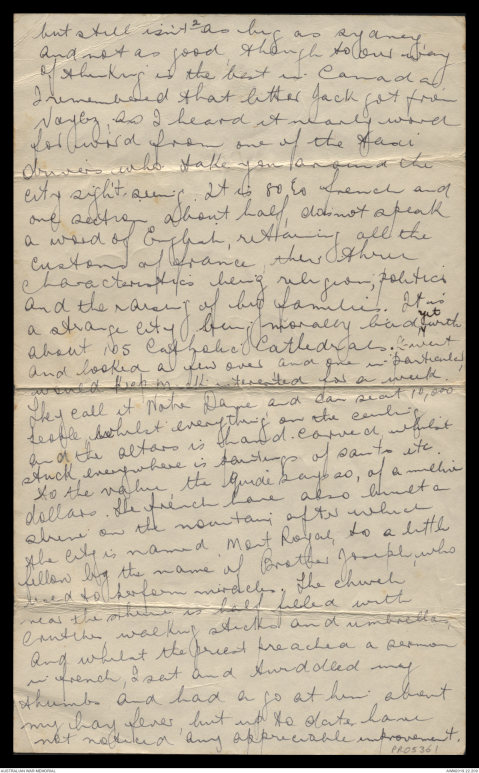 but still isn't as big as sydney
and not as good, though to our way
of thinking is the best in Canada
I remembered that letter Jack got from
as I heard it nearly word
for word from one of the taxi
drivers who take you around the
city sight-seeing. It is 80% french and
one section about half, does not speak
a word of English, retaining all the
customs of france, their three
characteristics being religion, politics
and the raising of big families. It is
a strange city being morally bad yet with
about 105 Catholic Cathedrals. I went
and looked a few over and one in particular
would keep interested for a week
They call it Notre Dame and can seat 10,000
people whilst everything on the ceiling
and the altars is hand-carved whilst
stuck everywhere is paintings of saints etc.
to the value the guide says so, of a million
dollars. The french have also built a
shrine on the mountain after which
the city is named, Mont Royal, to a little
fellow by the name of Brother Joseph, who
used to perform miracles. The church
near the shrine is half filled with
crutches walking sticks and umbrellas,
and whilst the priest preached a sermon
in french, I sat and twiddled my
thumbs and had a go at him about
my hay fever but up to date have
not noticed any appreciable improvement.
PR05361
AUSTRALIAN WAR MEMORIAL
AWM2019.22.200